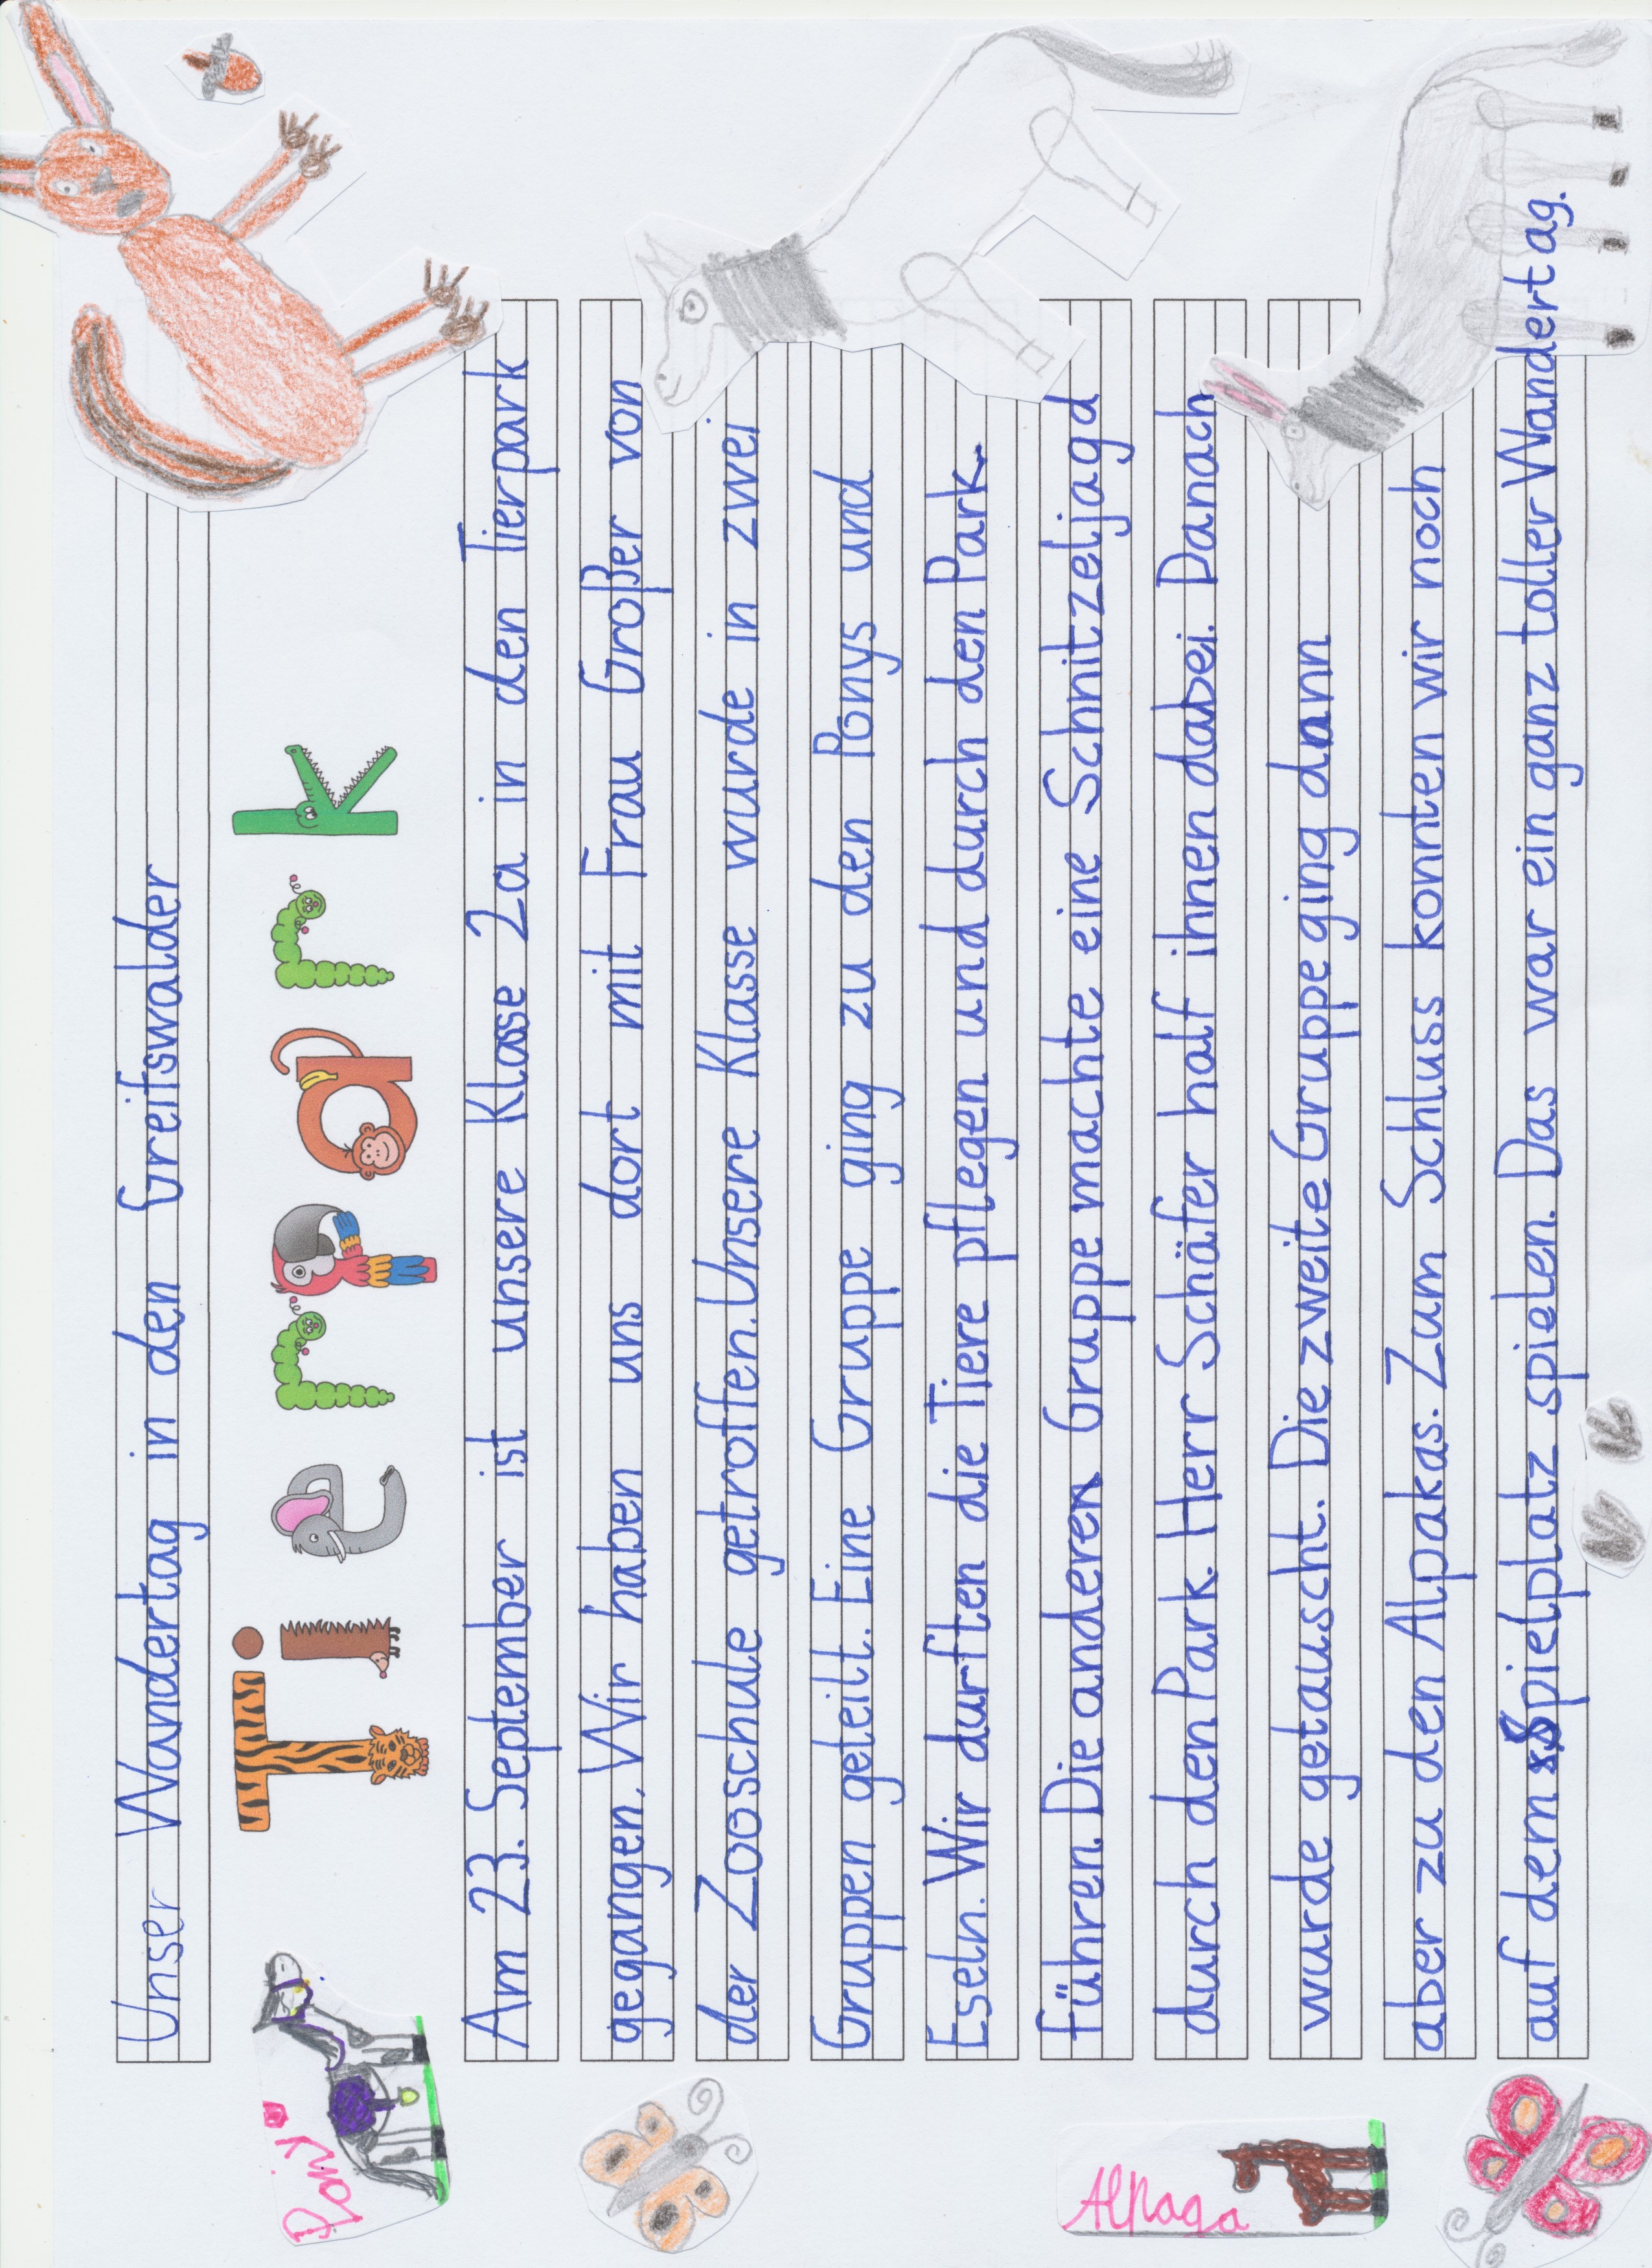 Unser Wandertag in den Greifswalder
Tierpark
Am 23. September ist unsere Klasse 2a in den Tierpark
gegangen. Wir haben uns dort mit Frau Großer von
der Zooschule getroffen. Unsere Klasse wurde in zwei
Gruppen geteilt. Eine Gruppe ging zu den Ponys und
Eseln. Wir durften die Tiere pflegen und durch den Park
führen. Die anderen Gruppe machte eine Schnitzeljagd
durch den Park. Herr Schäfer half ihnen dabei. Danach
wurde getauscht. Die zweite Gruppe ging dann
aber zu den Alpakas. Zum Schluss konnten wir noch
auf dem Spielplatz spielen. Das war ein ganz toller Wandertag.
Pony
Alpaga